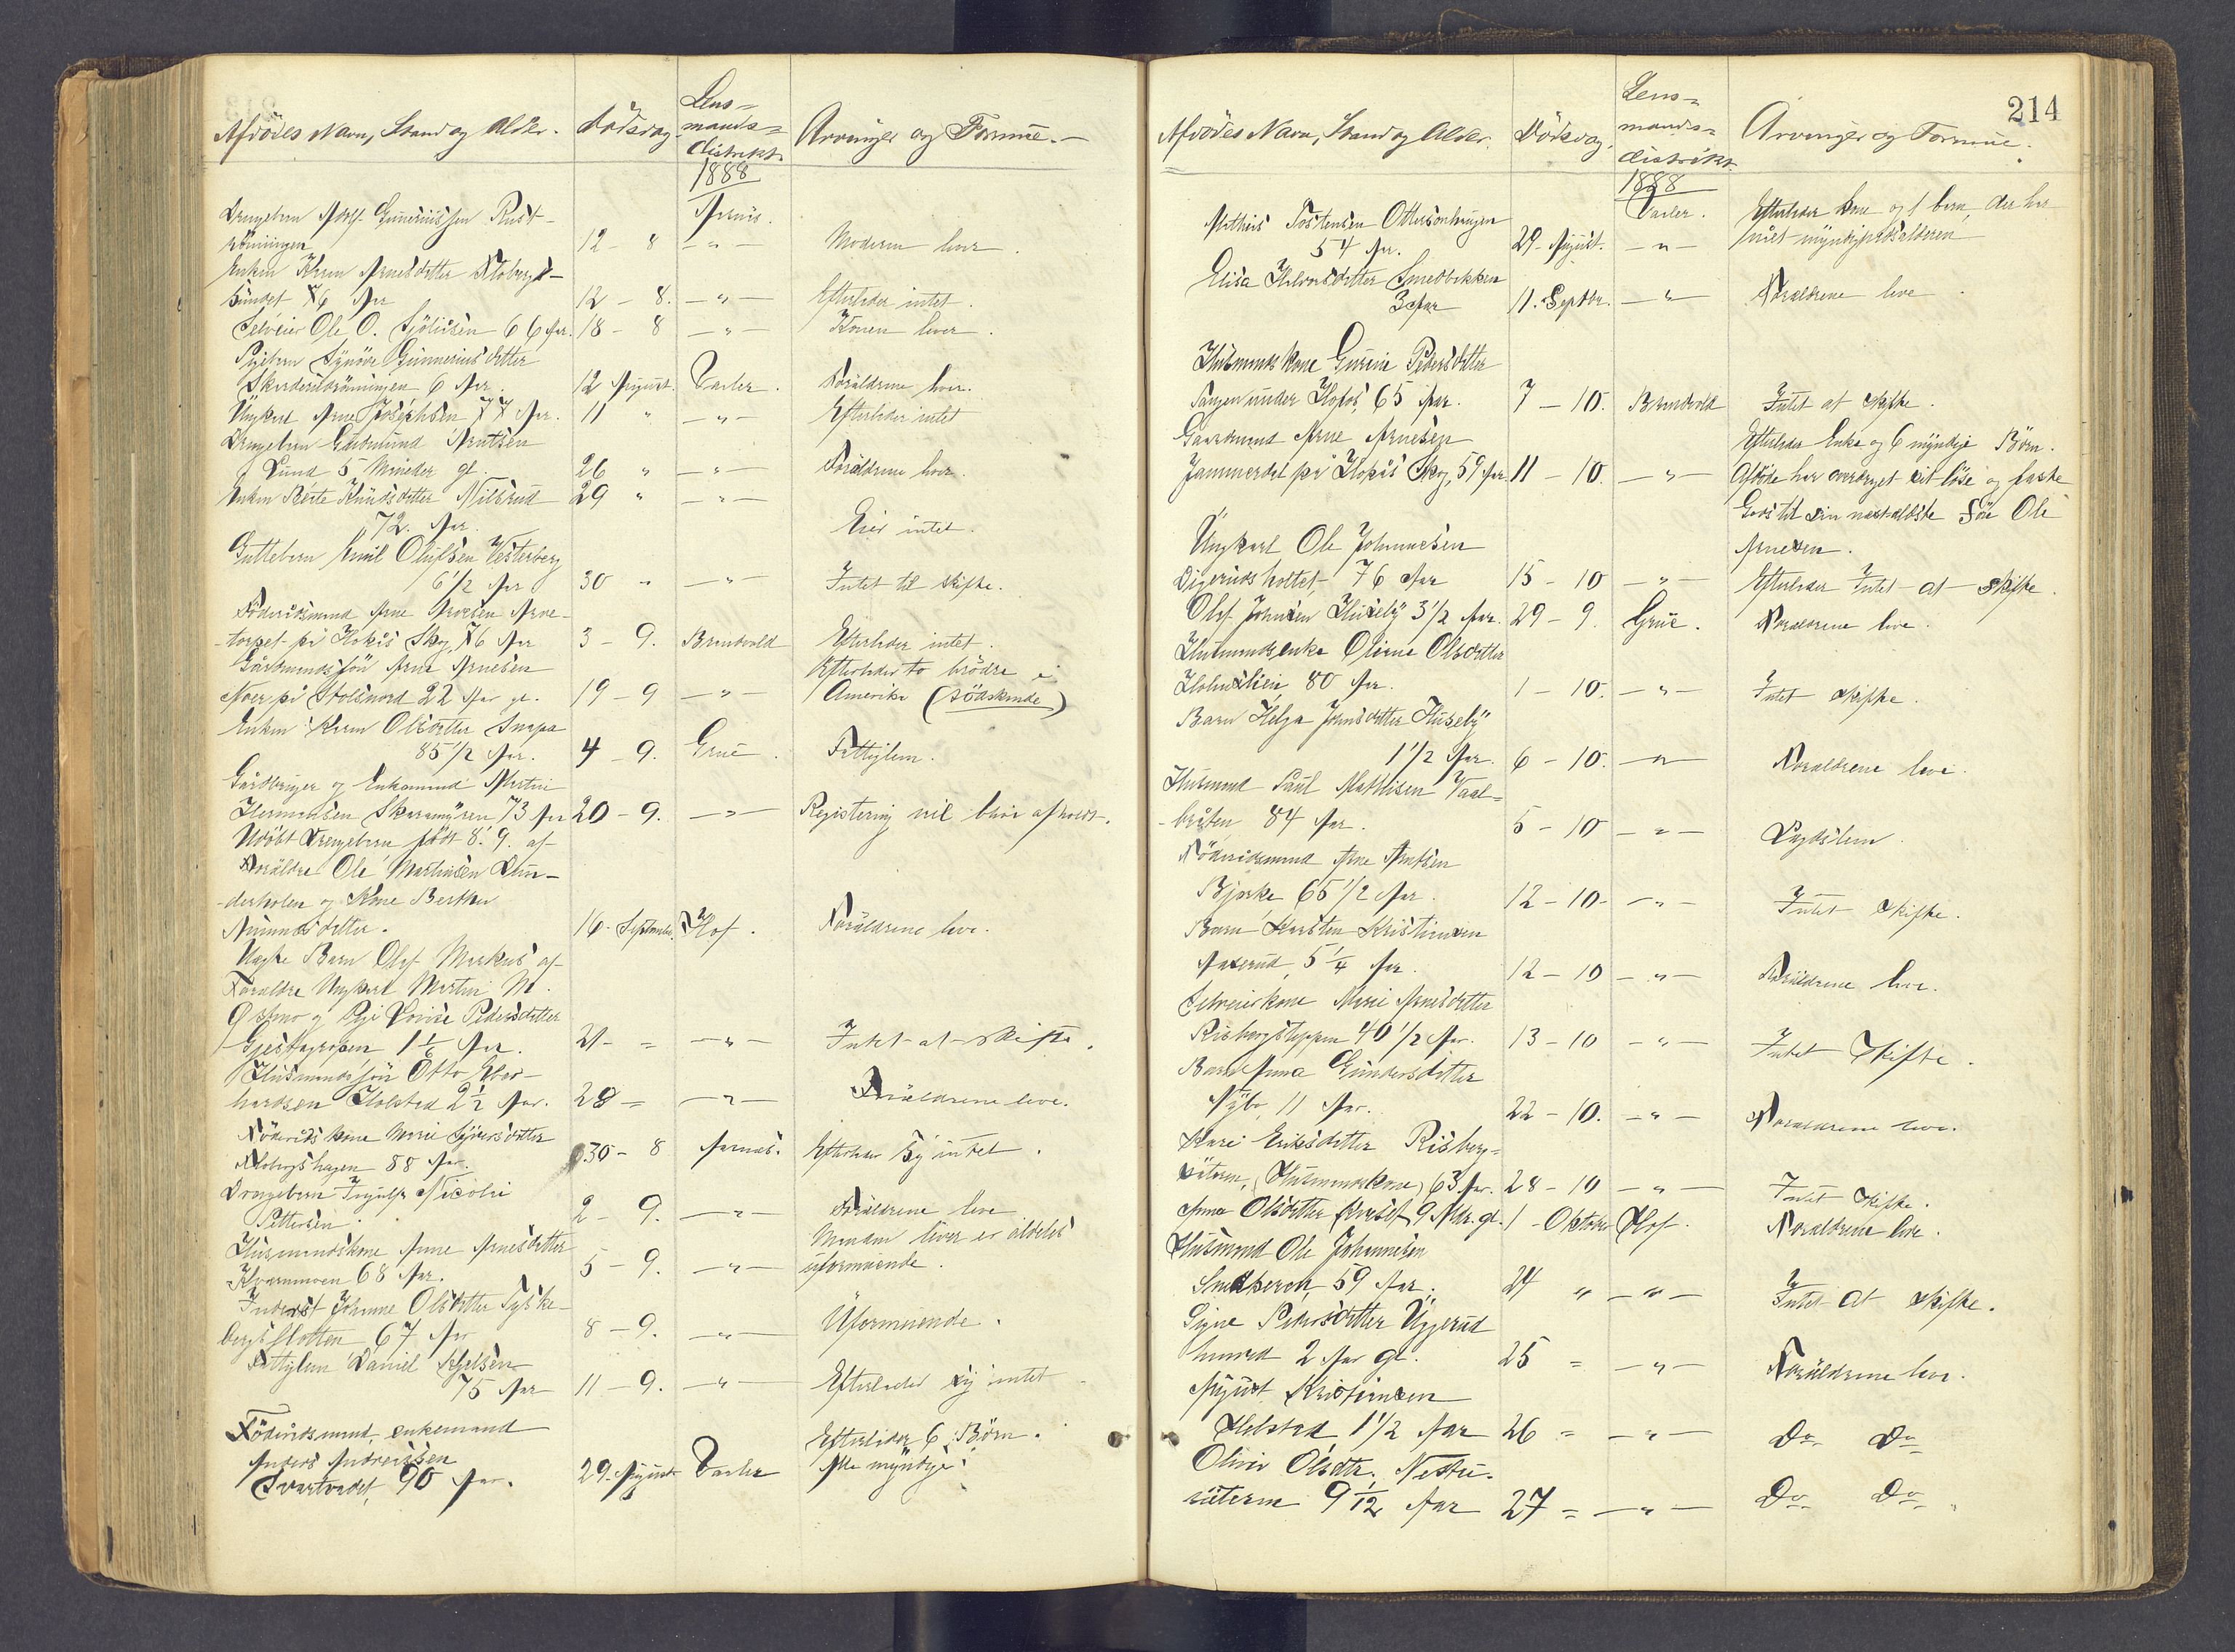 Afdödes Navn, Stand og Alder. Dödsdag Lens=
mands=
distrikt. Arvinger og Formue.
1888
Drengebarn Adolf Guneriussen Rust-
rönningen 12 - 8 -"- Moderen lever.
Enken Karen Arnesdatter
76 Aar 12 - 8. -"- Efterlader intet.
Selveier Ole O. 66 Aar. 18 - 8 -"- Konen lever.
Pigebarn Synöve Gunneriusdatter
6 Aar. 12 August. Vaaler. Forældrene lever.
Ungkarl Arne Josephsen 77 Aar. 11 " -"- Efterlader intet
Drengebarn Gudmund Arntsen
Lund 5 Maaneder gl. 26 " -"- Forældrene lever.
Enken Berte Knudsdatter Nilsrud 29 " -"-
72. Aar. Eier intet.
Guttebarn Emil Olufsen Vesterberg
6 1/2 Aar 30 " -"- Intet til skifte.
Föderaadsmand Arne Arnesen Arne-
torpet på Hokås Skog, 76 Aar 3 - 9. Brandvold Efterlader intet.
Gårdmandssön Arne Arnesen
22 Aar gl. 19 - 9 -"- Efterlader to brödre i
Amerika (södskende)
Enken Karen Olsdatter Snapa
85 1/2 Aar. 4 - 9. Grue. Fattiglem.
Gårdbruger og Enkemand Martin
Hermansen Skaramyren 73 Aar 20 - 9. -"- Registering vil blive afholdt.
Udöbt Drengebarn födt 8. 9. af
Forældre Ole Martinsen Dun-
derholen og Kone Berthe
Amundsdatter. 16. September. Hof. Forældrene leve.
Uægte Barn Olaf Markus af
Forældre Ungkarl Martin M.
Östmo og Pige Lovise Pedersdatter
Gjestegropen 1 1/6 Aar. 21 - = -"- Intet at skifte.
Husmandssön Otto Eber-
hardsen Holstad 2 1/2 Aar. 28 = -"- Forældrene leve.
Föderåds kone Marie Syversdatter
88 Aar. 30 - 8 Aasnes. Efterlader sig intet.
Drengebarn Ingulf Nicolai
Pettersen. 2 - 9. -"- Forældrene leve
Husmandskone Anne Arnesdatter
Kvernmoen 68 Aar. 5 - 9. -"- Manden lever er aldeles
uformuende.
Inderst Johanne Olsdatter Tyske-
bergsslotten 67 Aar 8 - 9. -"- Uformuende.
Fattiglem Daniel Kjelsen
75 Aar 11 - 9. -"- Efterlader sig intet
Föderådsmand, enkemand
Anders Andreassen
Svartvadet, 90 Aar. 29. August Vaaler Efterlader 6 Börn.
Alle myndige.
214
Afdödes Navn, Stand og Alder. Dödsdag. Lens=
mands=
distrikt. Arvinger og Formue.
1888
Mathis Tostensen Ottersonhaugen Vaaler. Efterlader kone og 1 barn, der har
54 Aar. 29. August. -"- nået myndighedsalderen
Elisa Halvorsdatter Smedbekken
11. Septbr. -"- Forældrene leve.
Husmands kone Gurine Pedersdatter
Tangen under Hokås, 65 Aar. 7 - 10. Brandvold Intet at skifte.
Gaardmand Arne Arnesen Efterlader Enke og 6 myndige Börn.
Jammerdal på Hokås Skog, 59 Aar 11 - 10. -"- Afdöde har overdraget sit löse og faste
Gods til sin næstældste Sön Ole
Ungkarl Ole Johannesen Arnesen.
Digerudsholtet, 76 Aar 15 - 10 -"- Efterlader Intet at skifte.
Olaf Johnsen Huseby 3 1/2 Aar. 29 - 9. Grue. Forældrene leve.
Husmandsenke Oline Olsdatter
80 Aar. 1 - 10. -"- Intet skifte.
Barn Helga Johnsdatter Huseby
1 1/2 Aar. 6 - 10. -"- Forældrene leve.
Husmand Paul Mathisen Vaal=
bråten 84 Aar. 5 - 10 -"- Lægdslem.
Föderådsmand Arne Arntsen
Bjerke 65 1/2 Aar. 12 - 10 - -"- Intet skifte.
Barn Karsten Kristiansen
Aaserud, 5 1/4 Aar. 12 - 10 -"- Forældrene leve.
Selveierkone Marie Arnesdatter
Risbergstoppen 40 1/2 Aar. 13 - 10 -"- Intet Skifte.
Barn Anna Gundersdatter
Nybo 11 Aar. 22 - 10. -"- Forældrene leve.
Kari Eriksdatter Risberg=
säteren, (Husmandskone) 63 Aar. 28 - 10 -"- Intet skifte.
Anna Olsdatter 9 Mdr. gl. 1 - Oktober Hof. Forældrene leve.
Husmand Ole Johannesen
Smedbergn, 59 Aar. 24 " -"- Intet at skifte.
Signe Pedersdatter Uggerud
2 Aar gl. 25 = -"- Forældrene leve.
August Kristiansen
Holstad 1 1/2 Aar 26 = -"- Do Do
Olivia Olsdtr. Nestu-
säteren 9 1/12 Aar 27 = -"- Do Do